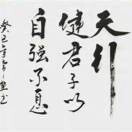 天行
健君子以
自强不息
癸巳年